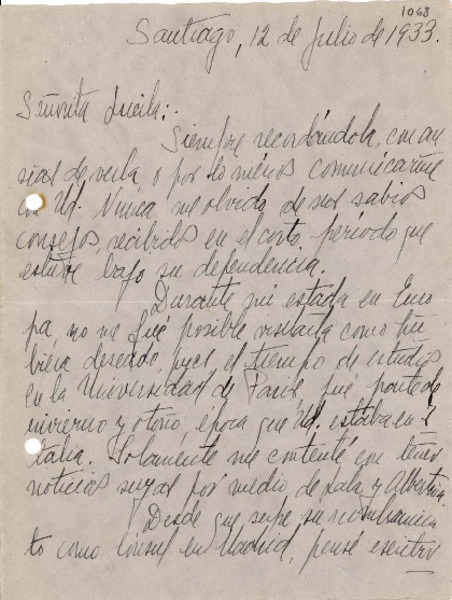 1068
Santiago, 12 de Julio de 1933.
Señorita Lucila:
Siempre recordándola, con an
sias de verla o por lo ménos comunicarme
con Ud. Nunca me olvido de sus sabios
consejos, recibidos en el corto período que
estuve bajo su dependencia.
Durante mi estada en Euro
pa, no me fué posible visitarla como hu
biera deseado, pues el tiempo de estudios
en la Universidad de Paris, fué parte de
invierno y otoño, época que Ud. estaba en I
talia. Solamente me contenté con tener
noticias suyas por medio de Lala y Albertina.
Desde que supe su nombramien
to como Cónsul en Madrid, pensé escribir